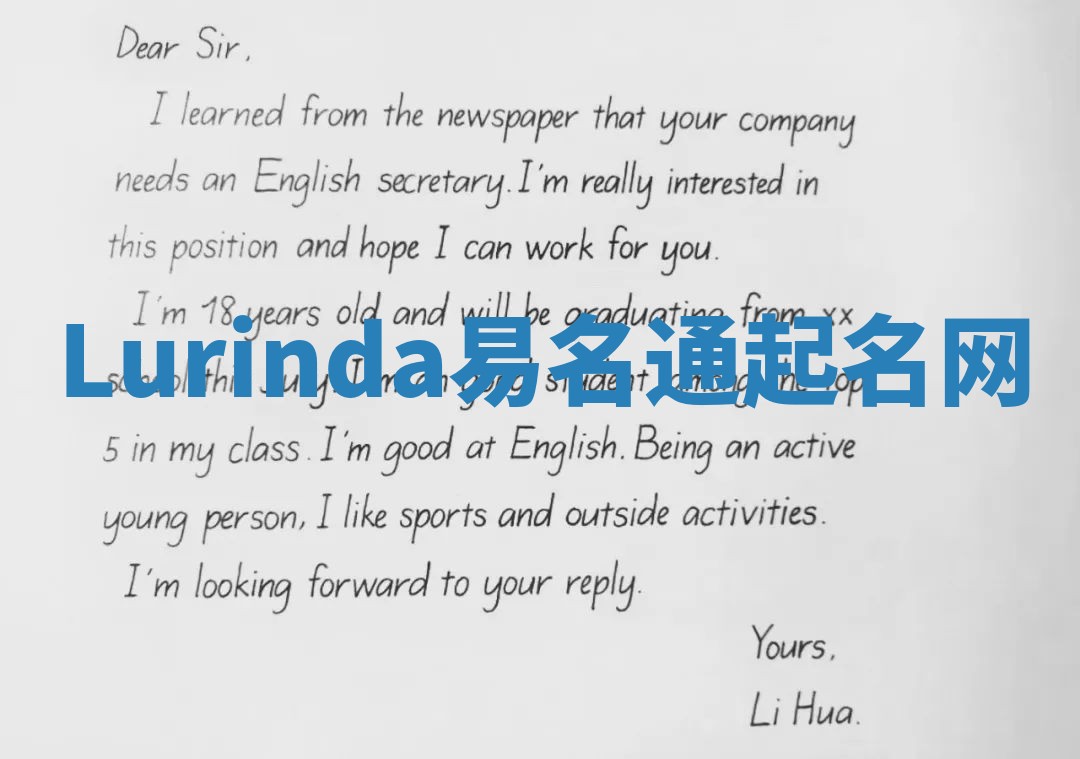 Dear Sir,
I learned from the newspaper that your company
needs an English secretary. I'm really interested in
this position and hope I can work for you.
I'm 18 years old and will be graduating from xx
Lurinda易名通起名网
school this July. I'm an good student among the top
5 in my class. I'm good at English. Being an active
young person, I like sports and outside activities.
I'm looking forward to your reply.
Yours,
Li Hua.